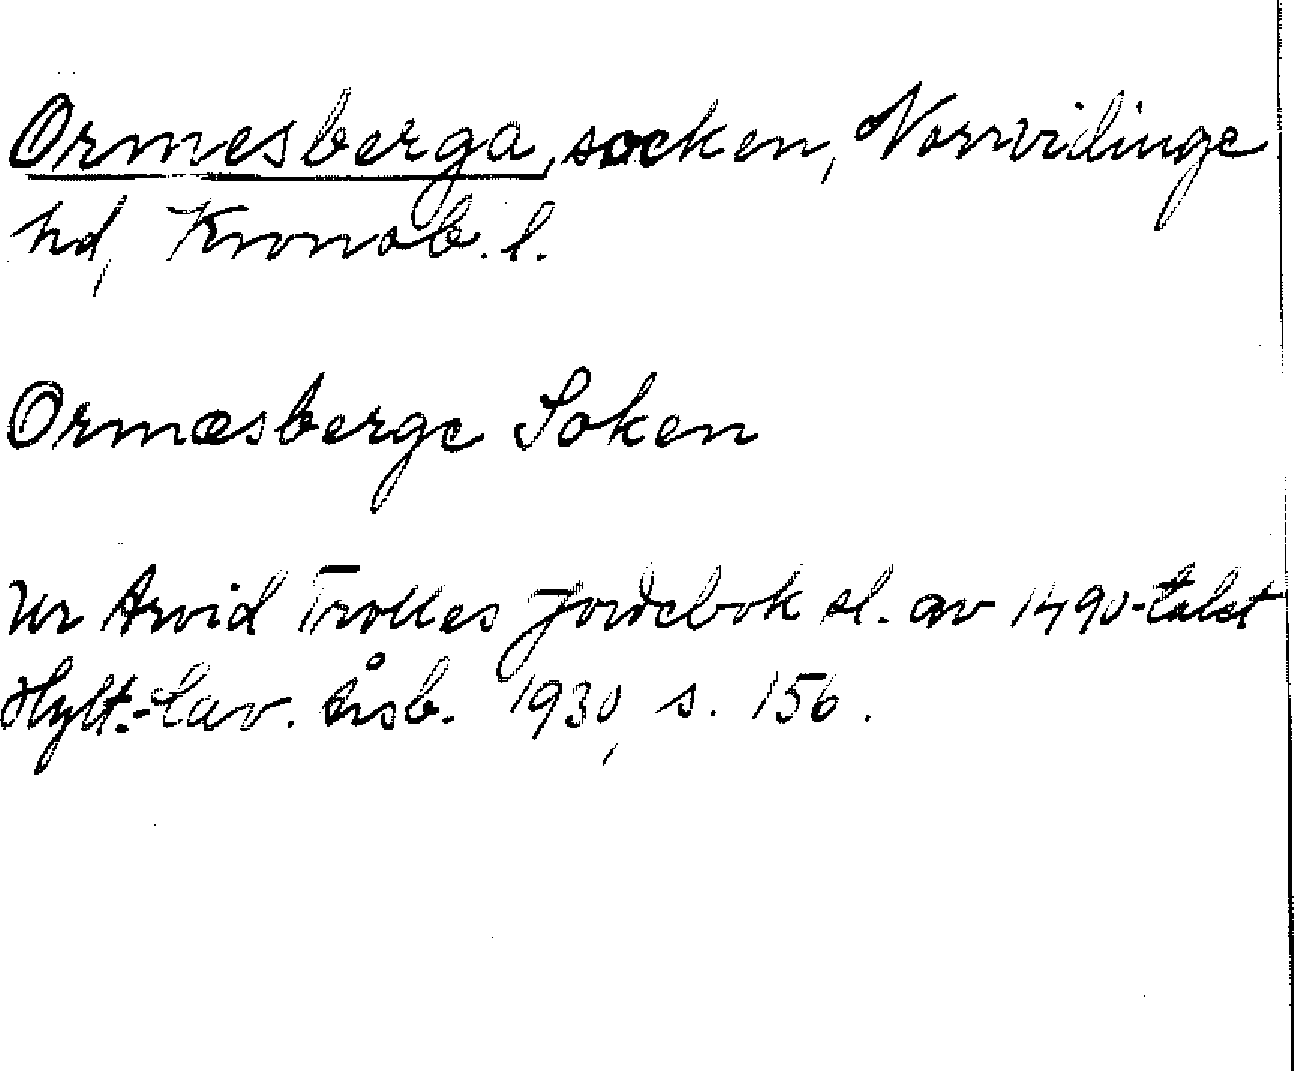 Ormesberga, socken, Norrvidinge
hd, Kronob. l.
Ormæsberge Soken
Ur Arvid Trolles Jordebok sl. av 1490-talet
Hylt.-Cav. årsb. 1930, s. 156.